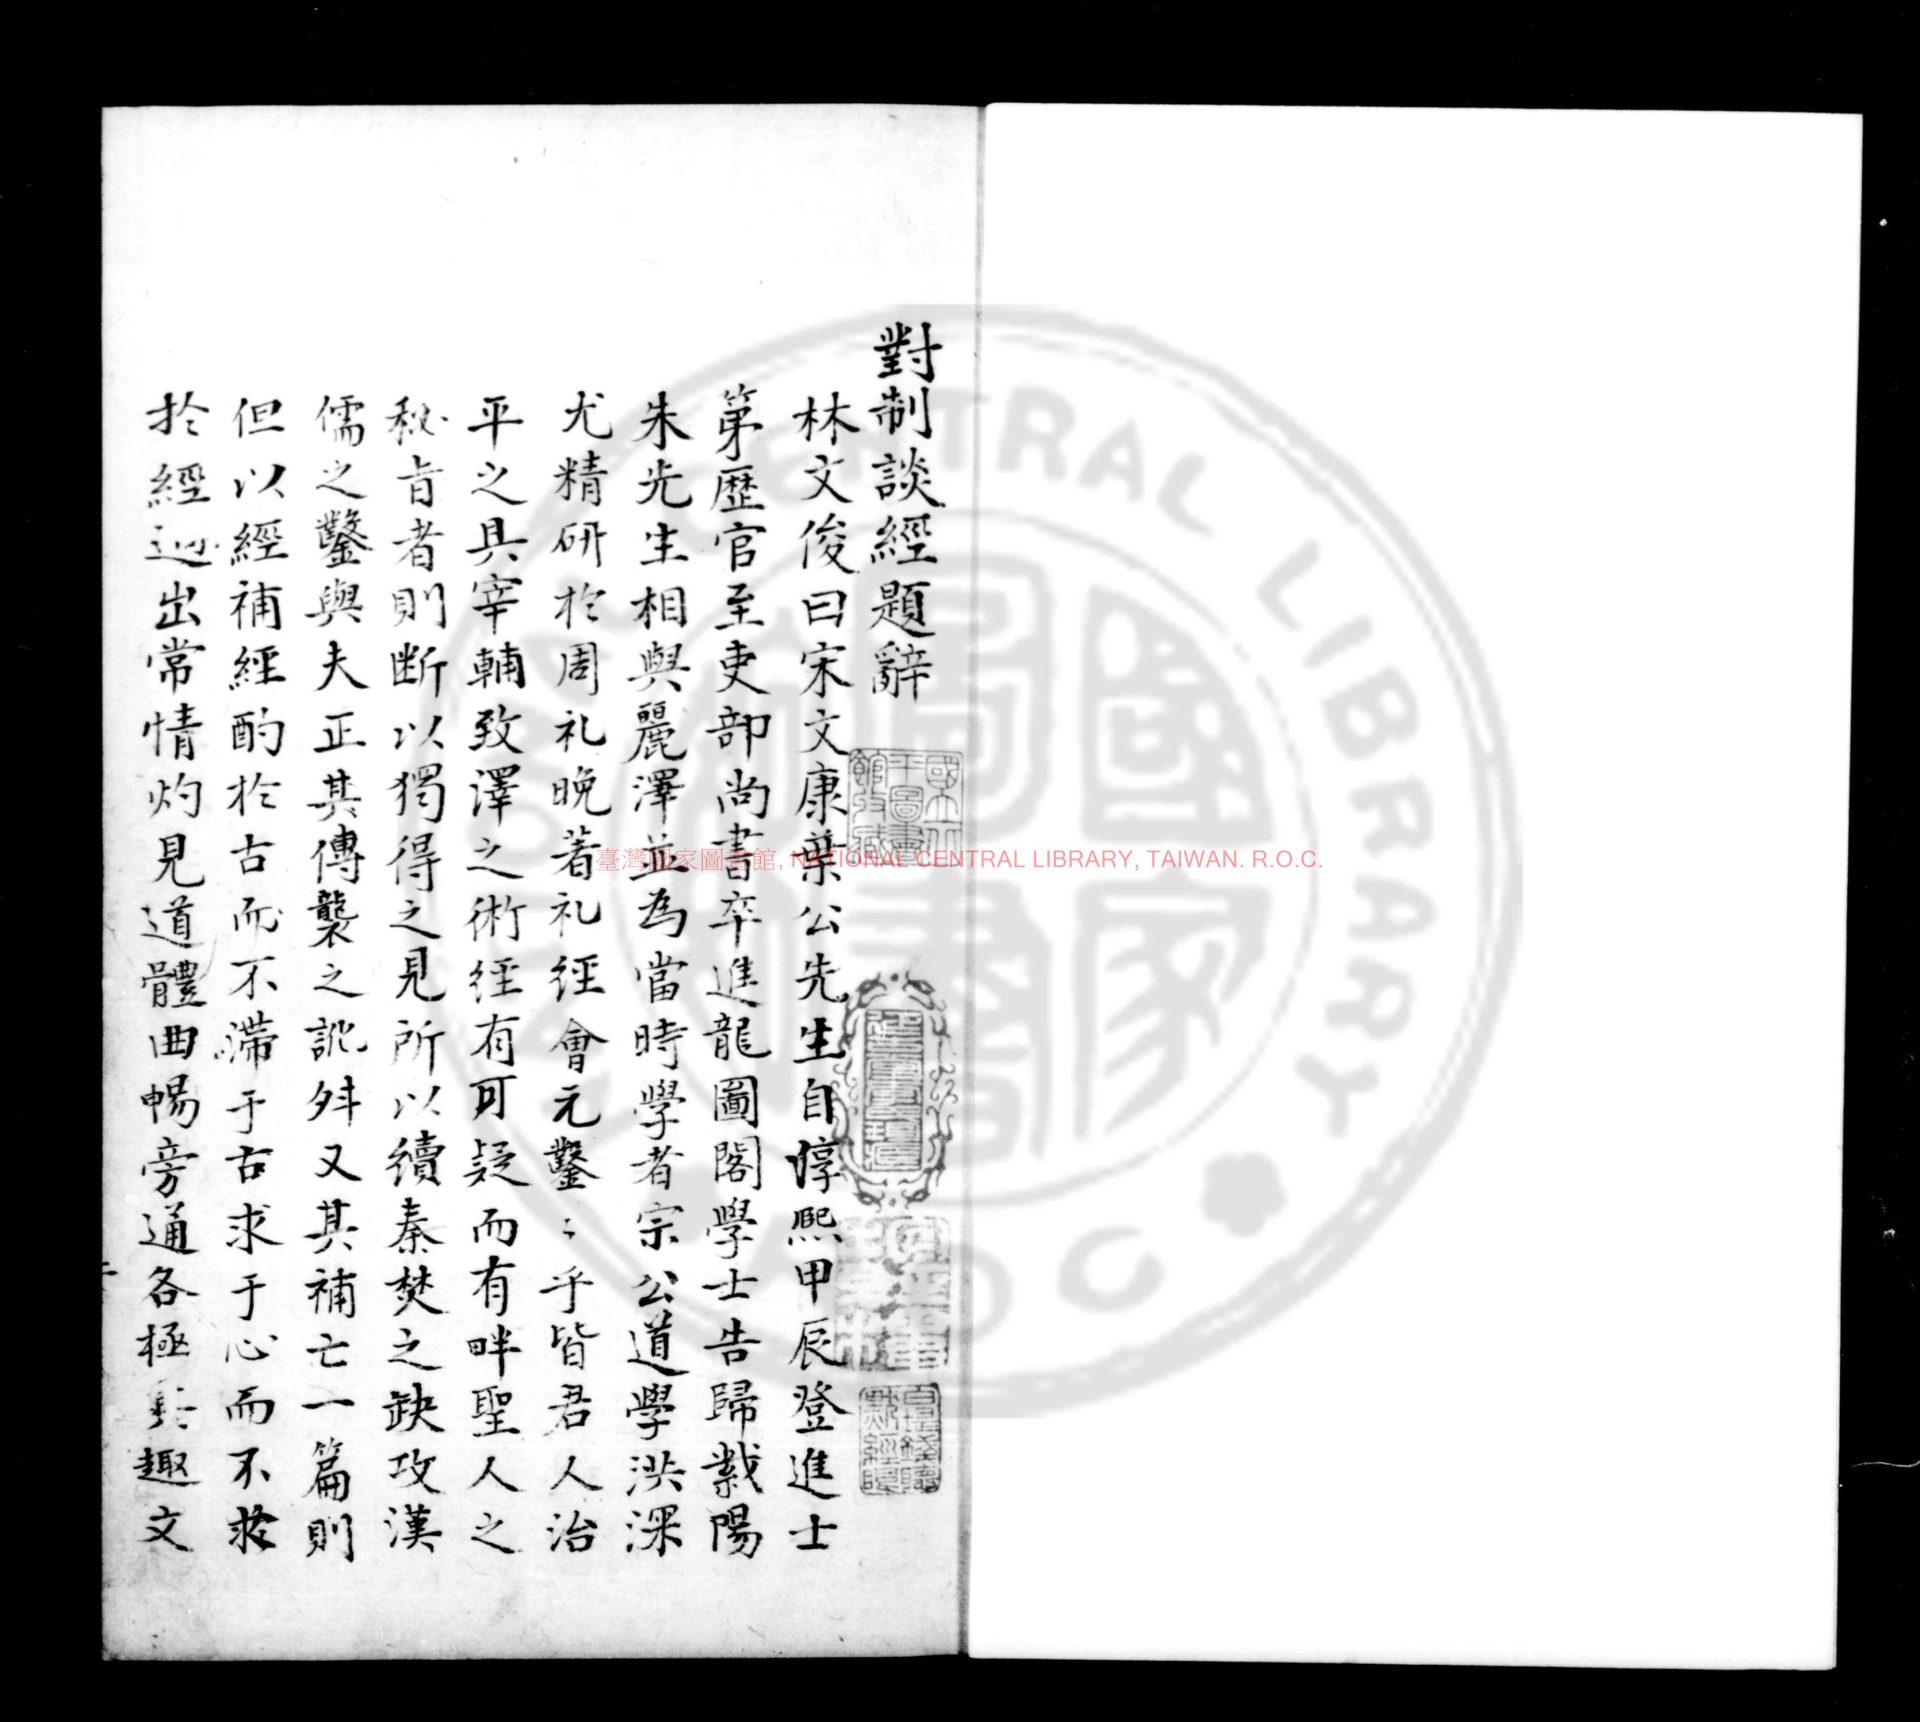 對制談經題辭
林文俊曰宋文康葉公先生自淳熙甲辰登進士
第歷官至吏部尚書卒進龍圖閣學士告歸紫陽
朱先生相與麗澤並為當時學者宗公道學洪深
尤精研於周礼晚著礼經會元鑿〻乎皆君人治
平之具宰輔致澤之術経有可疑而有畔聖人之
秘旨者則断以獨得之見所以續秦焚之缺攻漢
儒之鑿與夫正其傳襲之訛舛又其補亡一篇則
但以經補經酌於古而不滯于古求于心而不
於經迥出常情灼見道體曲暢旁通各極其趣文
臺灣國家圖書館, NATIONAL CENTRAL LIBRARY, TAIWAN. R.O.C.
NATIONAL CENTRAL LIBRARY R.O.C.
國家圖書館
國立中央圖書館收藏